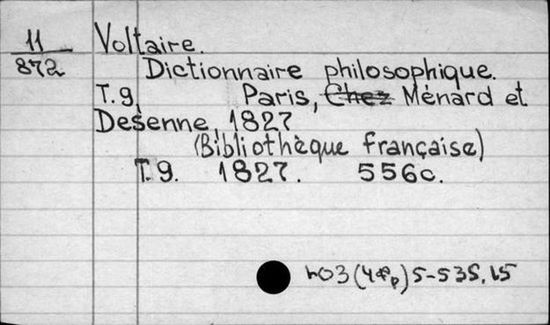 11
872
Voltaire.
Dictionnaire philosophique.
T. 9, Paris, Chez Ménard et
Desenne, 1827
(Bibliothèque française)
T. 9. 1827. 556c.
5-535,15